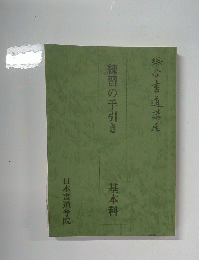 総合書道講座
練習の手引き
基本科
日本書道学院